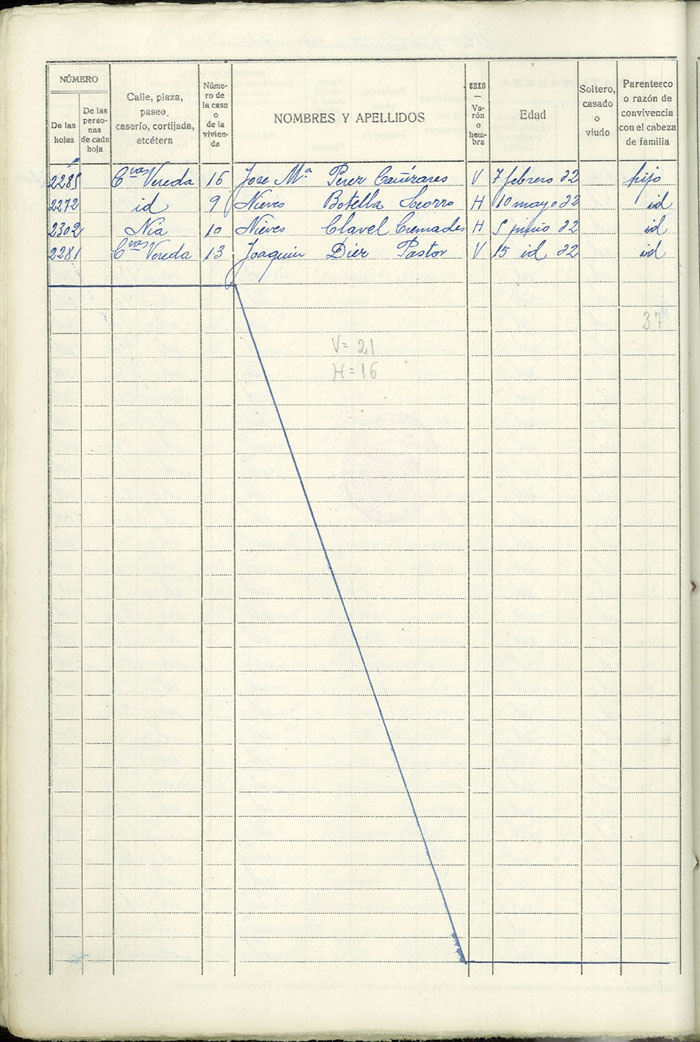 NÚMERO
De las hojas
De las personas de cada hoja
Calle, plaza, paseo, caserío, cortijada, etcétera
Número de la casa o de la vivienda
NOMBRES Y APELLIDOS
SEXO — Varón o hembra
Edad
Soltero, casado o viudo
Parentesco o razón de convivencia con el cabeza de familia
2285 Cvas Vereda 16 Jose Mª Perez Cañizares V 7 febrero 22 hijo
2272 id 9 Nieves Botella H 10 mayo 22 id
2302 Nia 10 Nieves Clavel Cremades H 5 junio 22 id
2281 Cvas Vereda 13 Joaquin Diez Pastor V 15 id 22 id
37
V = 21
H = 16